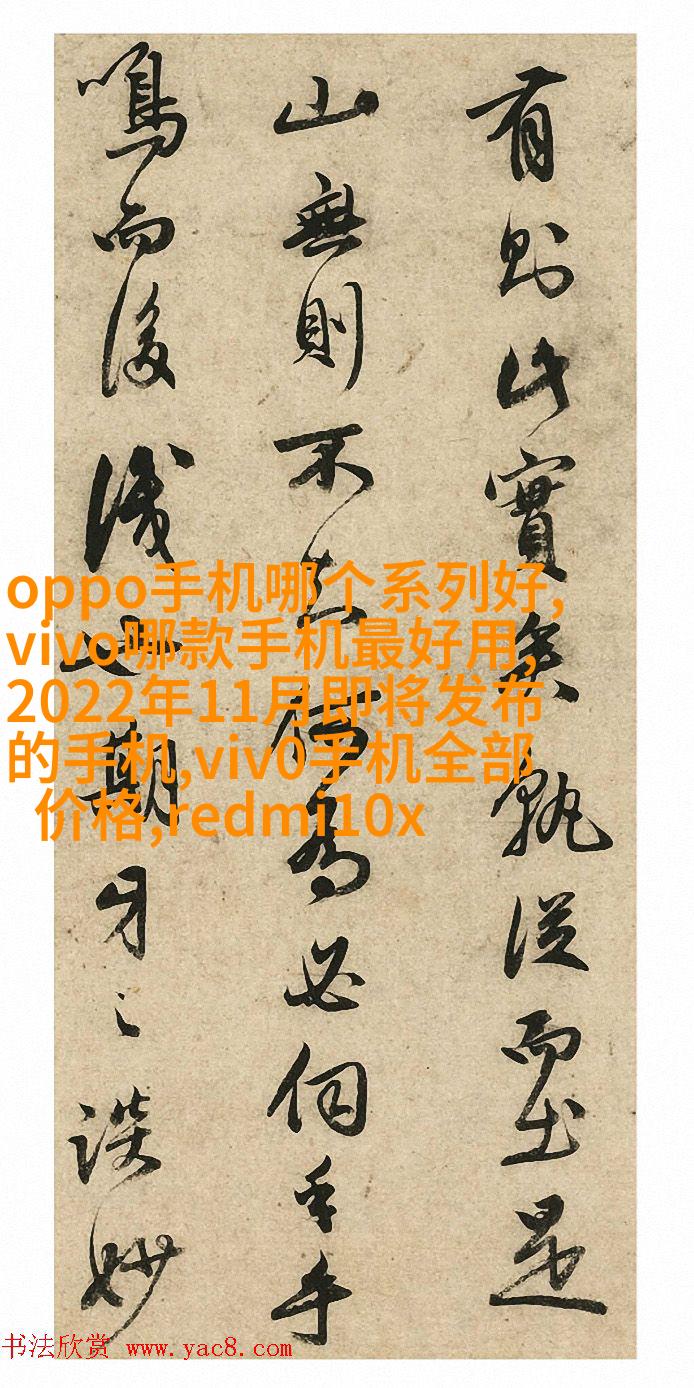 有則此實矣孰從而出是
山無則不何為必伺手乎
鳴而後識也期牙之談妙
oppo手机哪个系列好,
vivo哪款手机最好用,
2022年11月即将发布
的手机,viv0手机全部
价格,redmi10x
书法欣赏 www.yac8.com